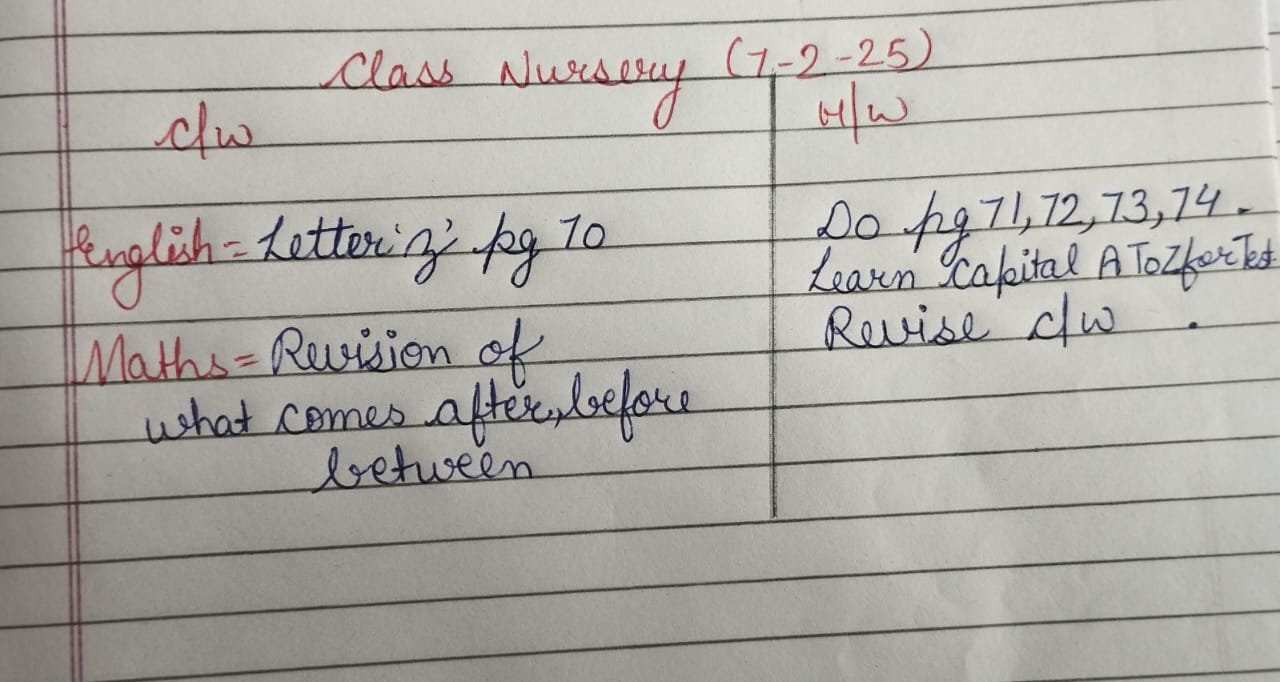 Class Nursery (7-2-25)
C/w
H/w
English = Letter 'z' pg 70
Do pg 71, 72, 73, 74.
Learn Capital A To Z for Test
Maths = Revision of
Revise c/w .
what comes after, before
between